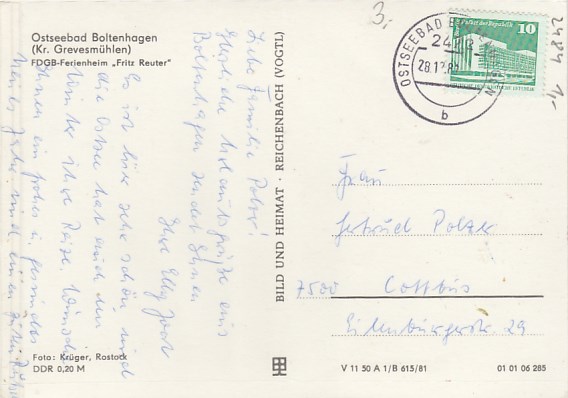 Ostseebad Boltenhagen
(Kr. Grevesmühlen)
FDGB-Ferienheim „Fritz Reuter"
Liebe Familie Polzer!
Herzliche Urlaubsgrüße aus
Boltenhagen sendet Ihnen
Ihre Elly
Es ist hier sehr schön, und
die Ostsee hat auch den
Winter ihre Reize. Wünsche
Ihnen ein frohes u. gesundes
neues Jahr und einen guten
Foto: Krüger, Rostock
DDR 0,20 M
BILD UND HEIMAT · REICHENBACH (VOGTL)
3,-
OSTSEEBAD
28.12.8
b
10
2484 1,-
Frau
Gertrud Polzer
7500 Cottbus
Eilenburgerstr. 29
V 11 50 A 1/B 615/81
01 01 06 285